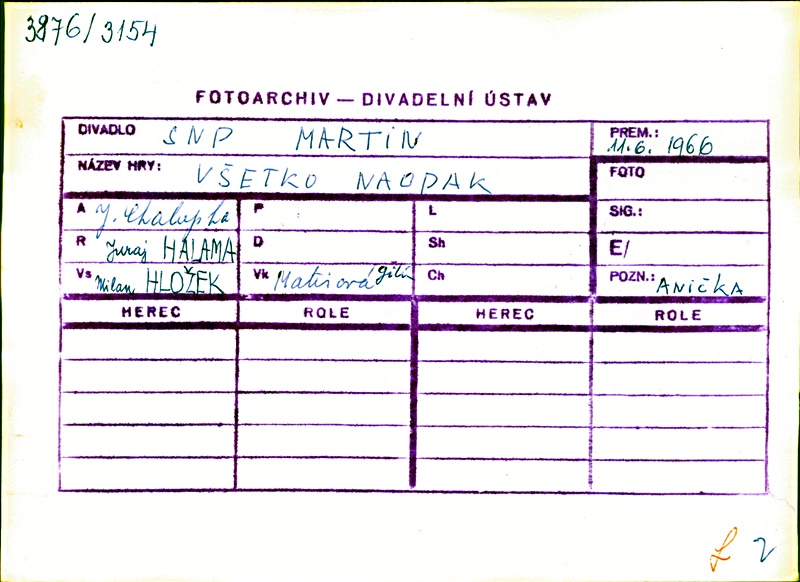 3976/3154
FOTOARCHIV — DIVADELNÍ ÚSTAV
DIVADLO SND MARTIN
PREM.: 11.6. 1966
NÁZEV HRY: VŠETKO NAOPAK
FOTO
A J. Chalupka P L SIG.:
R Juraj HALAMA D Sh E/
Vs Milan HLOŽEK Vk Matisová Ch POZN.: ANIČKA
HEREC ROLE HEREC ROLE
2